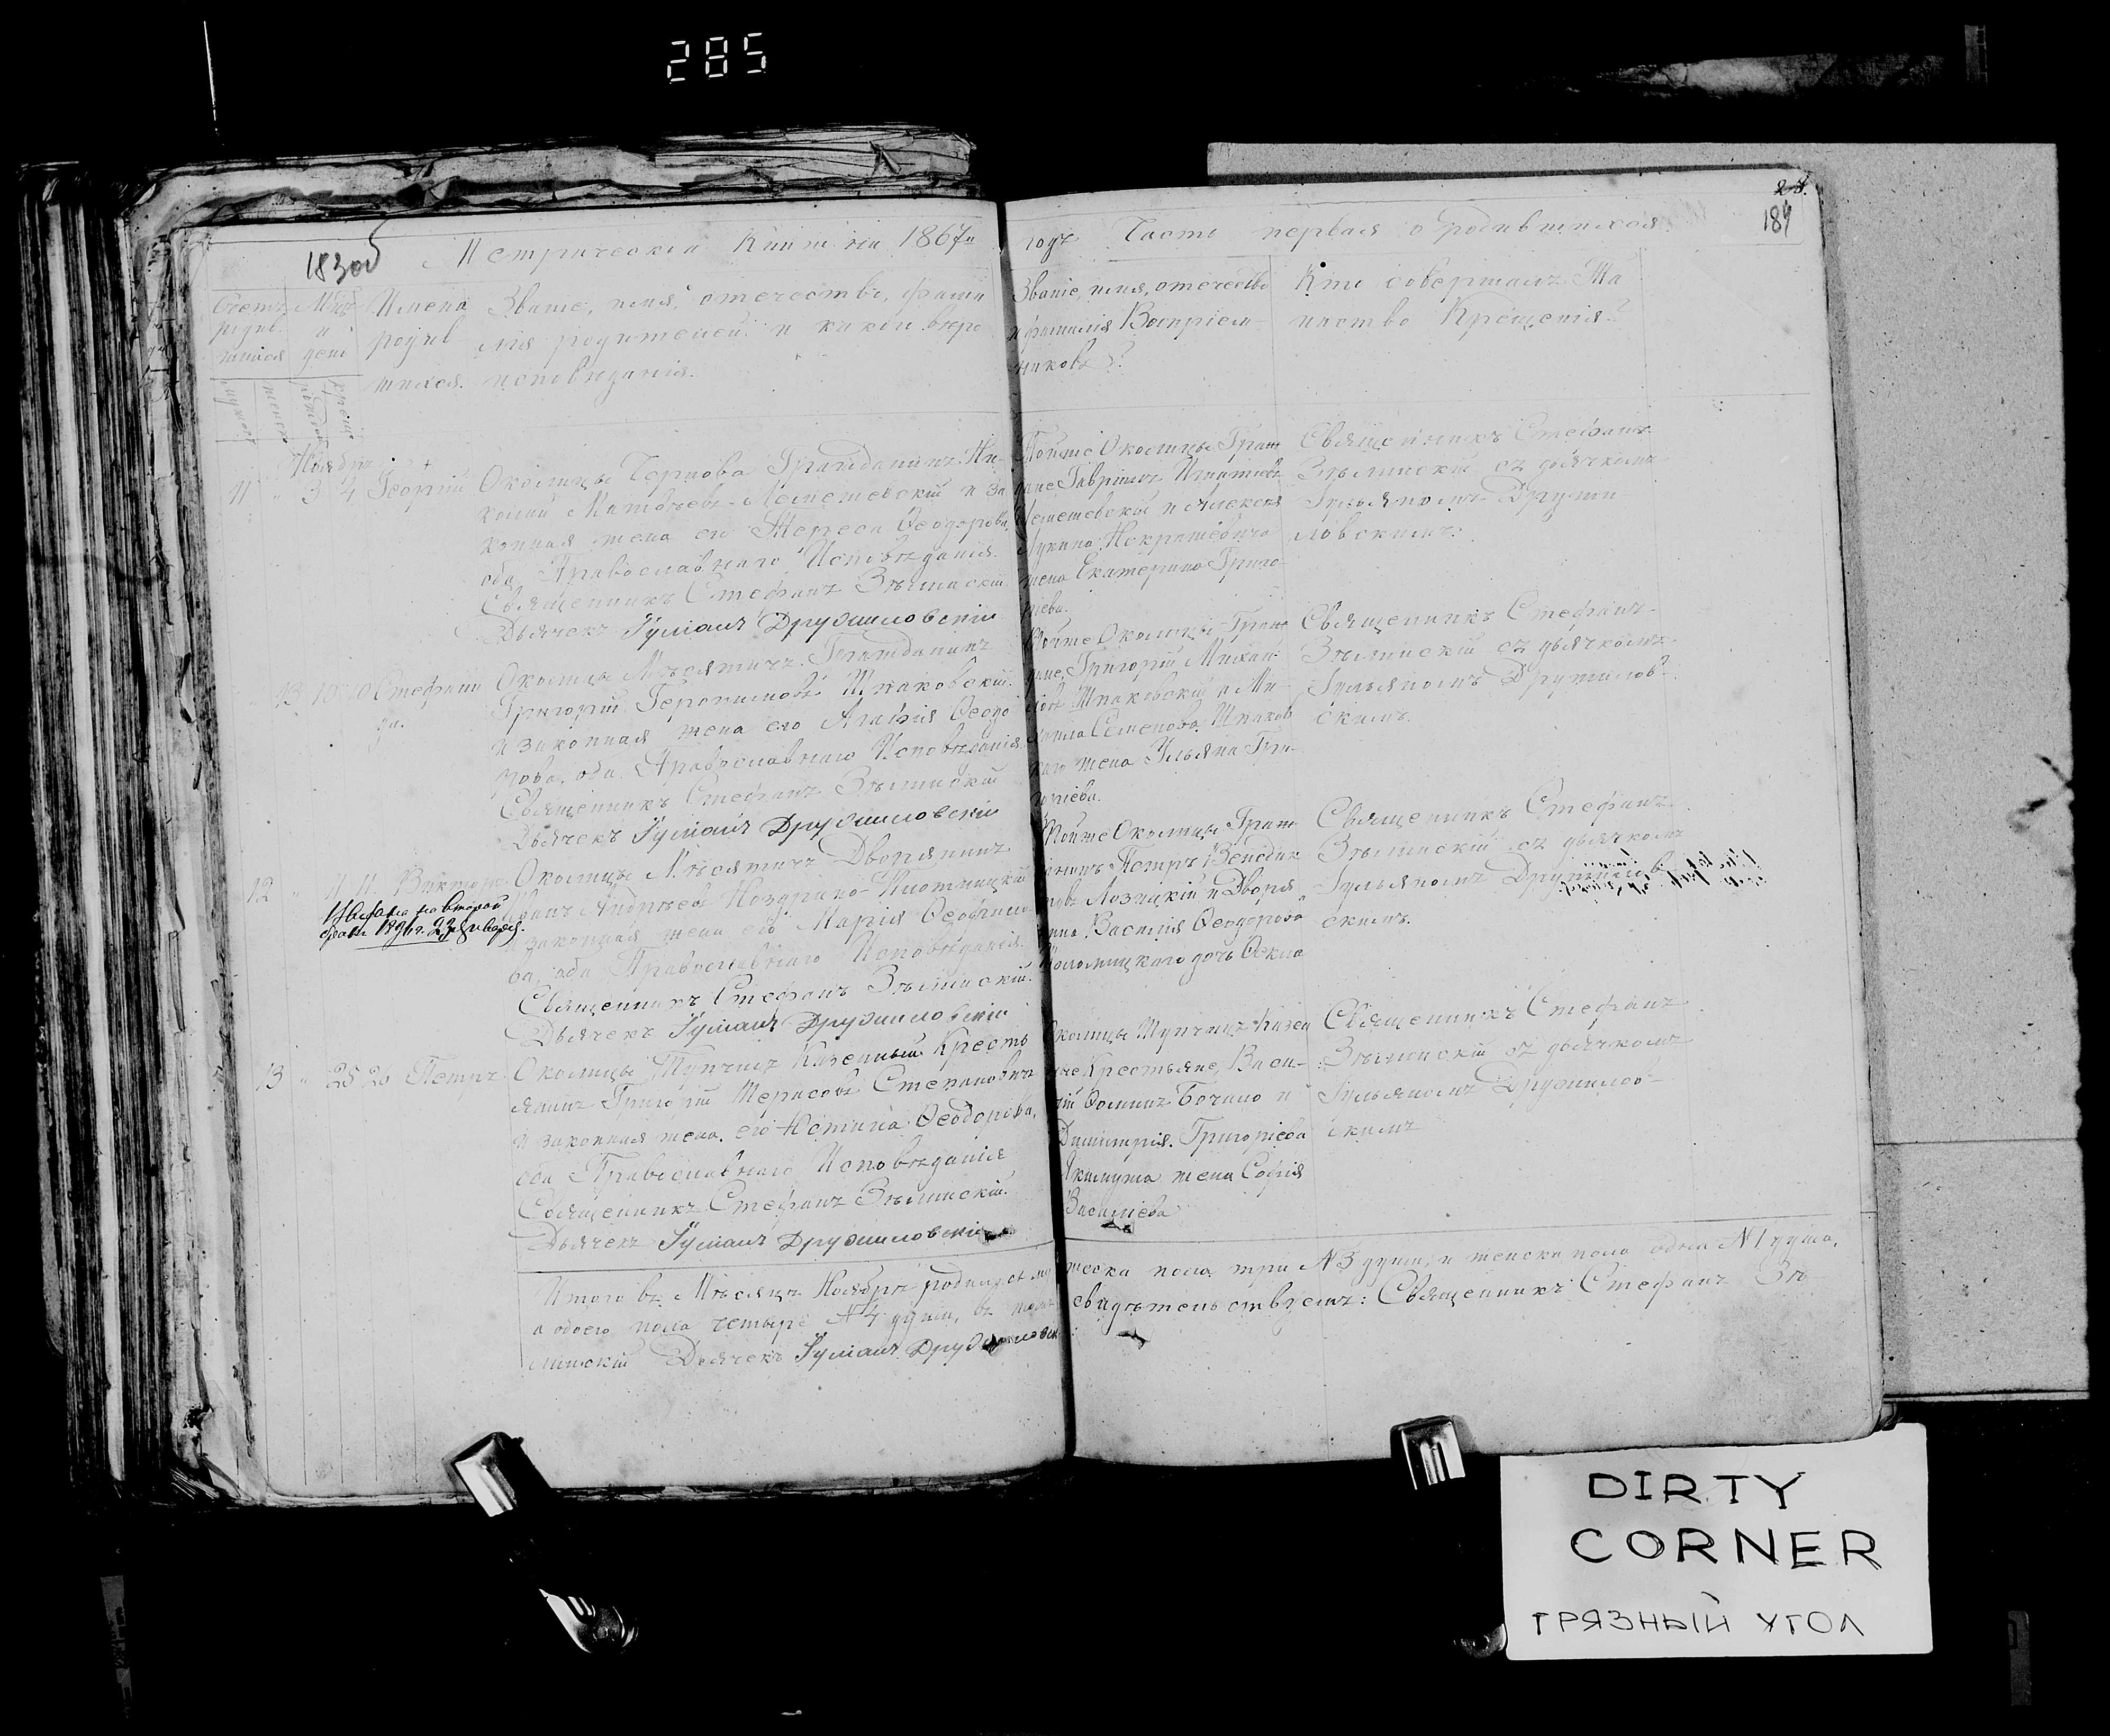 285
28.
184
1830
Метрической Книги на 1867й
годъ Часть первая о родившихся.
Счетъ родив-
шихся
Мѣс.
и
дни
Имена
родив-
шихся.
Званіе, имя, отечество, фами-
лія родителей и какой вѣро
исповѣданія.
Званіе, имя, отечество
и фамилія Воспріем-
никовъ?
Кто совершалъ Та
инство Крещенія?
Ноябрь
11 " 3 4 Георгій
Околицы Чернова Гражданинъ Ни-
колай Матвѣевъ Лемешевскій и за
конная жена его Тереса Ѳеодорова,
оба Православнаго Исповѣданія.
Священникъ Стефанъ Зѣлинскій
Дьячекъ Іуліанъ Дружиловскій
Тойже Околицы Граж
дане Гавріилъ Игнатіевъ
Лемешевскій и Алексѣя
жена Екатерина Григо
ріева.
Священникъ Стефанъ
Зѣлинскій съ дьячкомъ
Іульяномъ Дружи
ловскимъ.
" 13 10 10 Стефани
да.
Околицы Мѣсятичъ Гражданинъ
Григорій Іеронимовъ Шпаковскій
и законная жена его Агафія Ѳеодо
рова, оба Православнаго Исповѣданія
Священникъ Стефанъ Зѣлинскій
Дьячекъ Іуліанъ Дружиловскій
Тойже Околицы Граж
дане, Григорій Михаи
ловъ Шпаковскій и Ми
хаила Семенова Шпаков
скаго жена Ульяна Гри-
горіева.
Священникъ Стефанъ
Зѣлинскій съ дьячкомъ
Іульяномъ Дружилов-
скимъ.
12 " 11 11. Викторъ
Выдана на второй
1896г. 23 Января.
Околицы Мѣсятичъ Дворянинъ
Андрѣевъ Ноздрино-Плотницкій
законная жена его Марія Ѳеофило
ва, оба Православнаго Исповѣданія.
Священникъ Стефанъ Зѣлинскій.
Дьячекъ Іуліанъ Дружиловскій
Тойже Околицы Граж
данинъ Петръ Венедик
товъ Лозицкій и Дворя
нина Василія Ѳеодорова
дочь Ѳекла
Священникъ Стефанъ
Зѣлинскій съ дьячкомъ
Іульяномъ Дружилов
скимъ.
13 " 25 26 Петръ
Околицы Тупчицъ Казенный Кресть
янинъ Григорій Тарасовъ Степановичъ
и законная жена его Юстина Ѳеодорова,
оба Православнаго Исповѣданія
Священникъ Стефанъ Зѣлинскій.
Дьячекъ Іуліанъ Дружиловскій
Околицы Тупчицъ Казен
ные Крестьяне, Васи-
лій Ѳоминъ Бочило и
Димитрія Григоріева
жена Софія
Василіева
Священникъ Стефанъ
Зѣлинскій съ дьячкомъ
Іульяномъ Дружилов-
скимъ
Итого въ Мѣсяцѣ Ноябрѣ родилось му
жеска пола три №3 души, и женска пола одна №1 душа,
а обоего пола четыре №4 души, въ томъ
свидѣтельствуемъ: Священникъ Стефанъ Зѣ
линскій Дьячекъ Іуліанъ Дружиловскій
DIRTY
CORNER
ГРЯЗНЫЙ УГОЛ